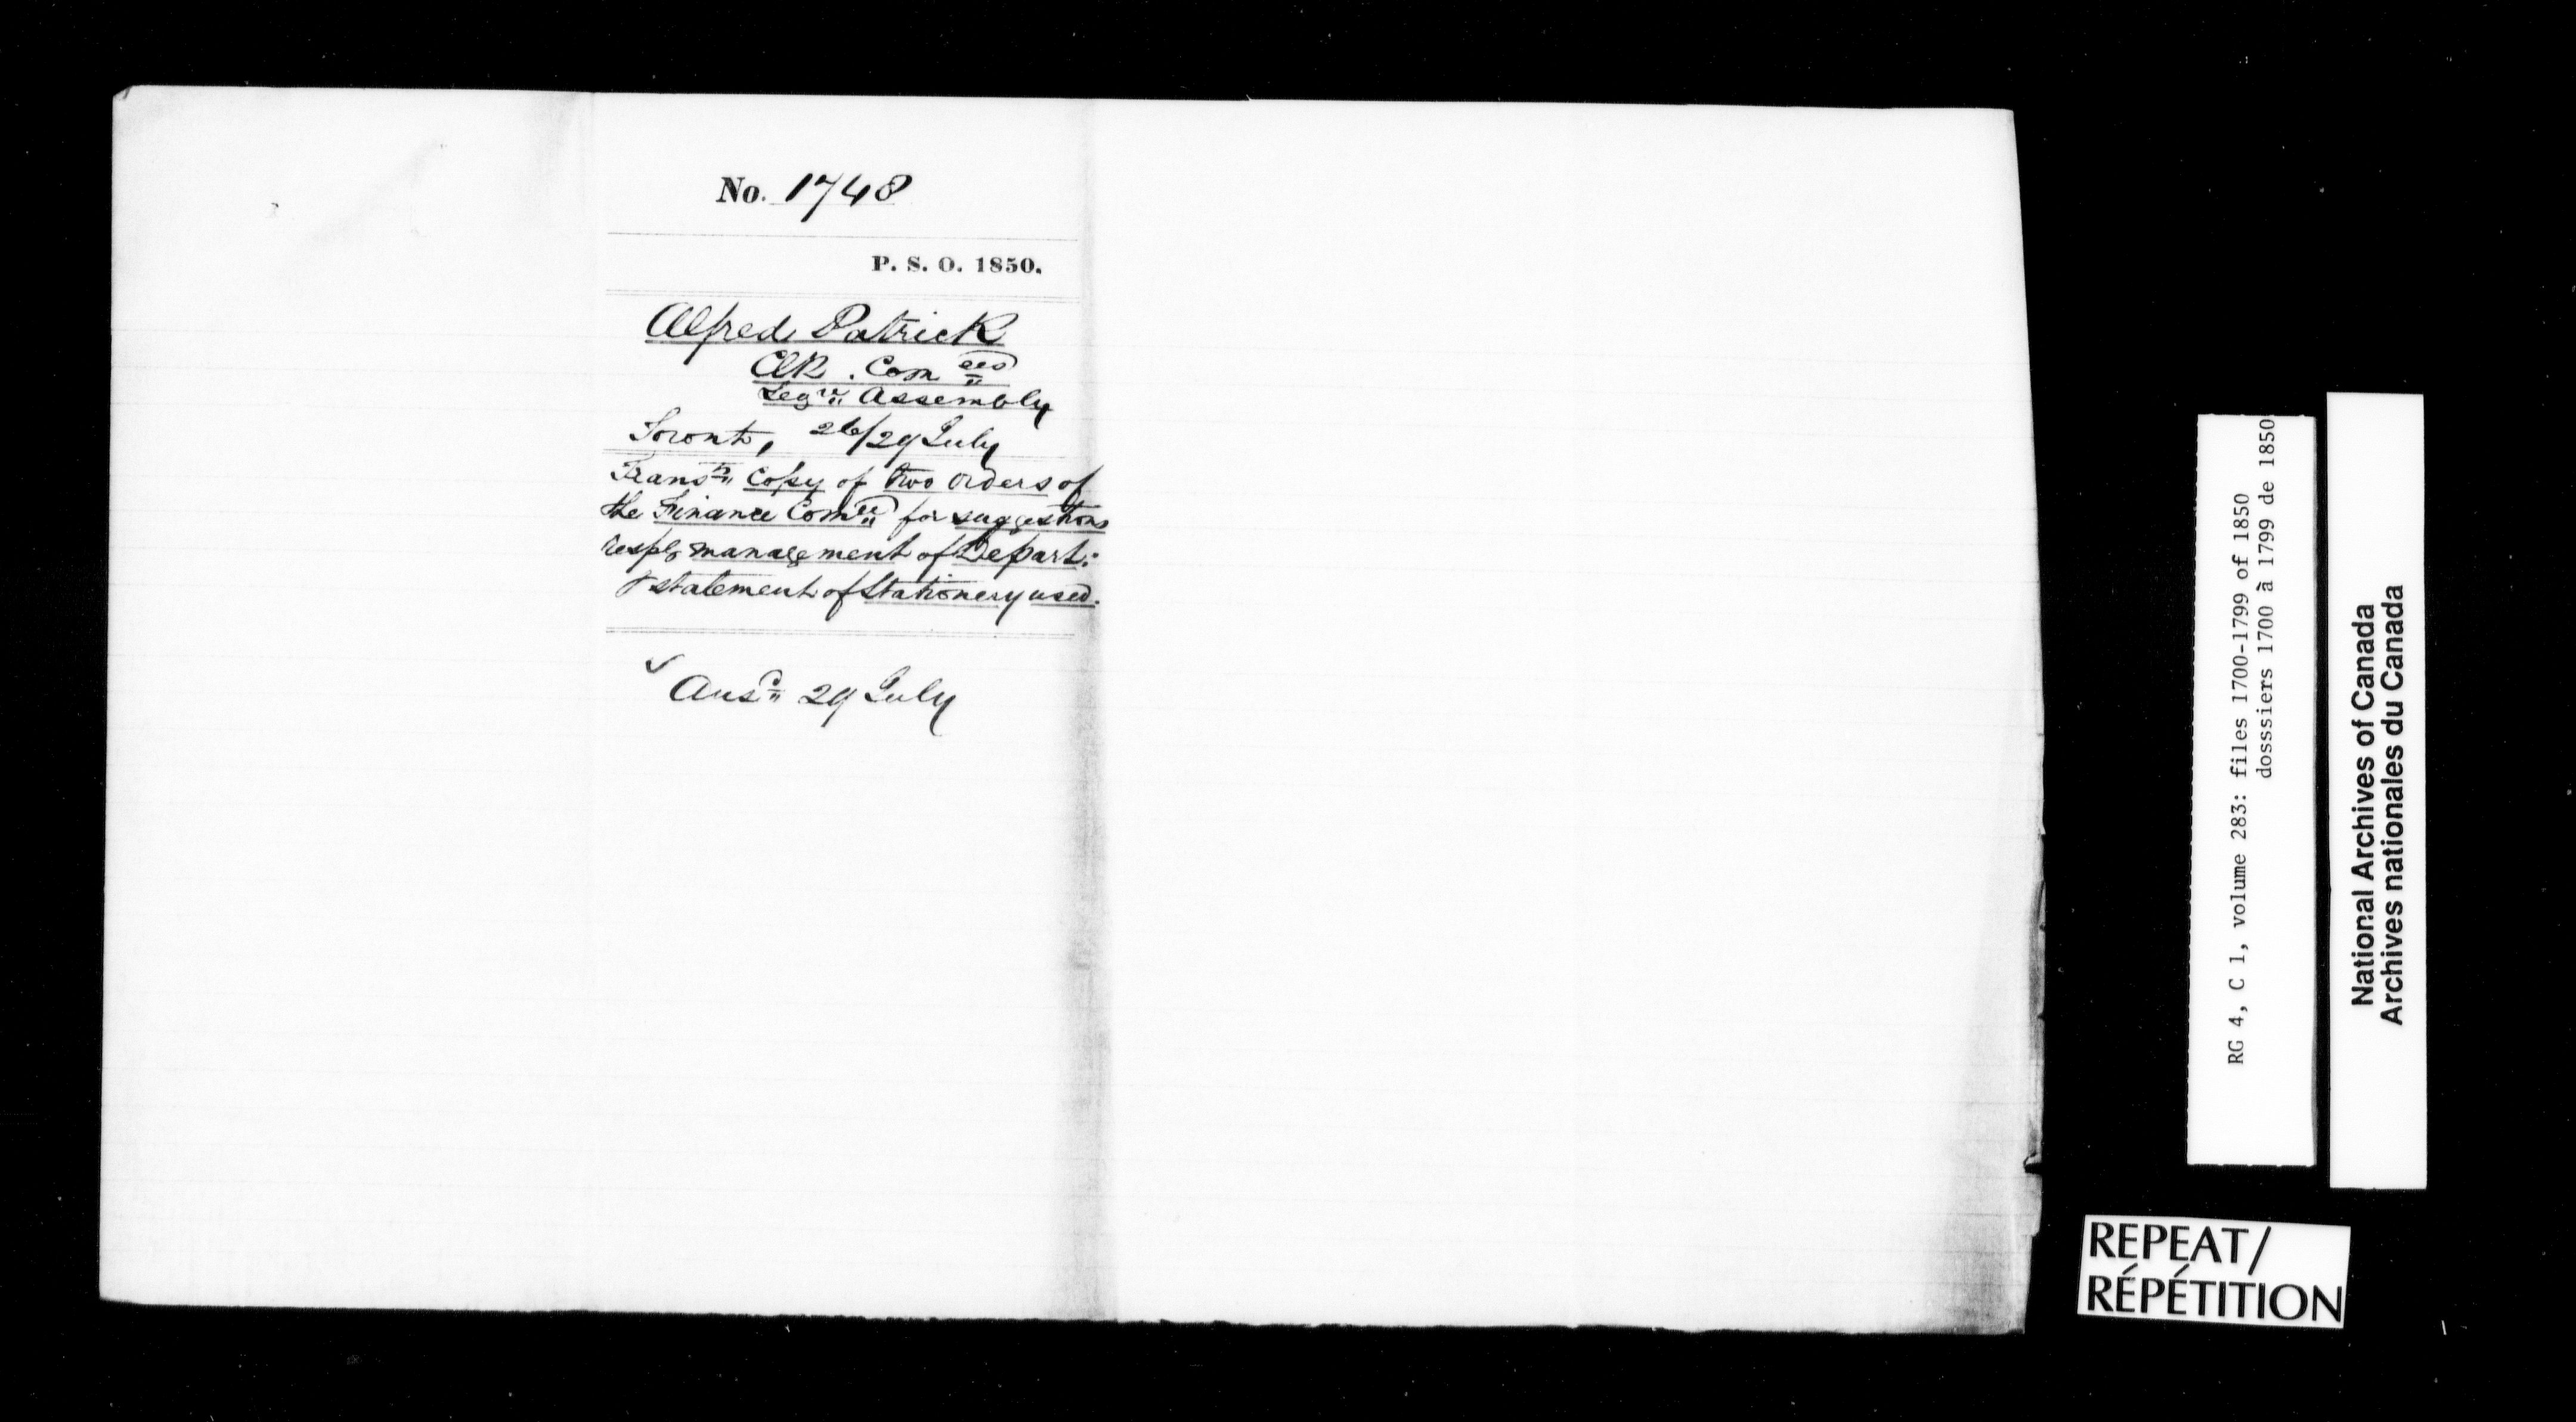 No. 1748
P. S. O. 1850.
Alfred Patrick
Clk. Com ees
Legve Assembly
Toronto, 26/29 July
Transg Copy of two orders of
the Finance Comee for suggestions
respg management of Depart:
& statement of Stationery used.
✓ Ansd 29 July
RG 4, C 1, volume 283: files 1700-1799 of 1850
dosssiers 1700 à 1799 de 1850
National Archives of Canada
Archives nationales du Canada
REPEAT/
RÉPÉTITION